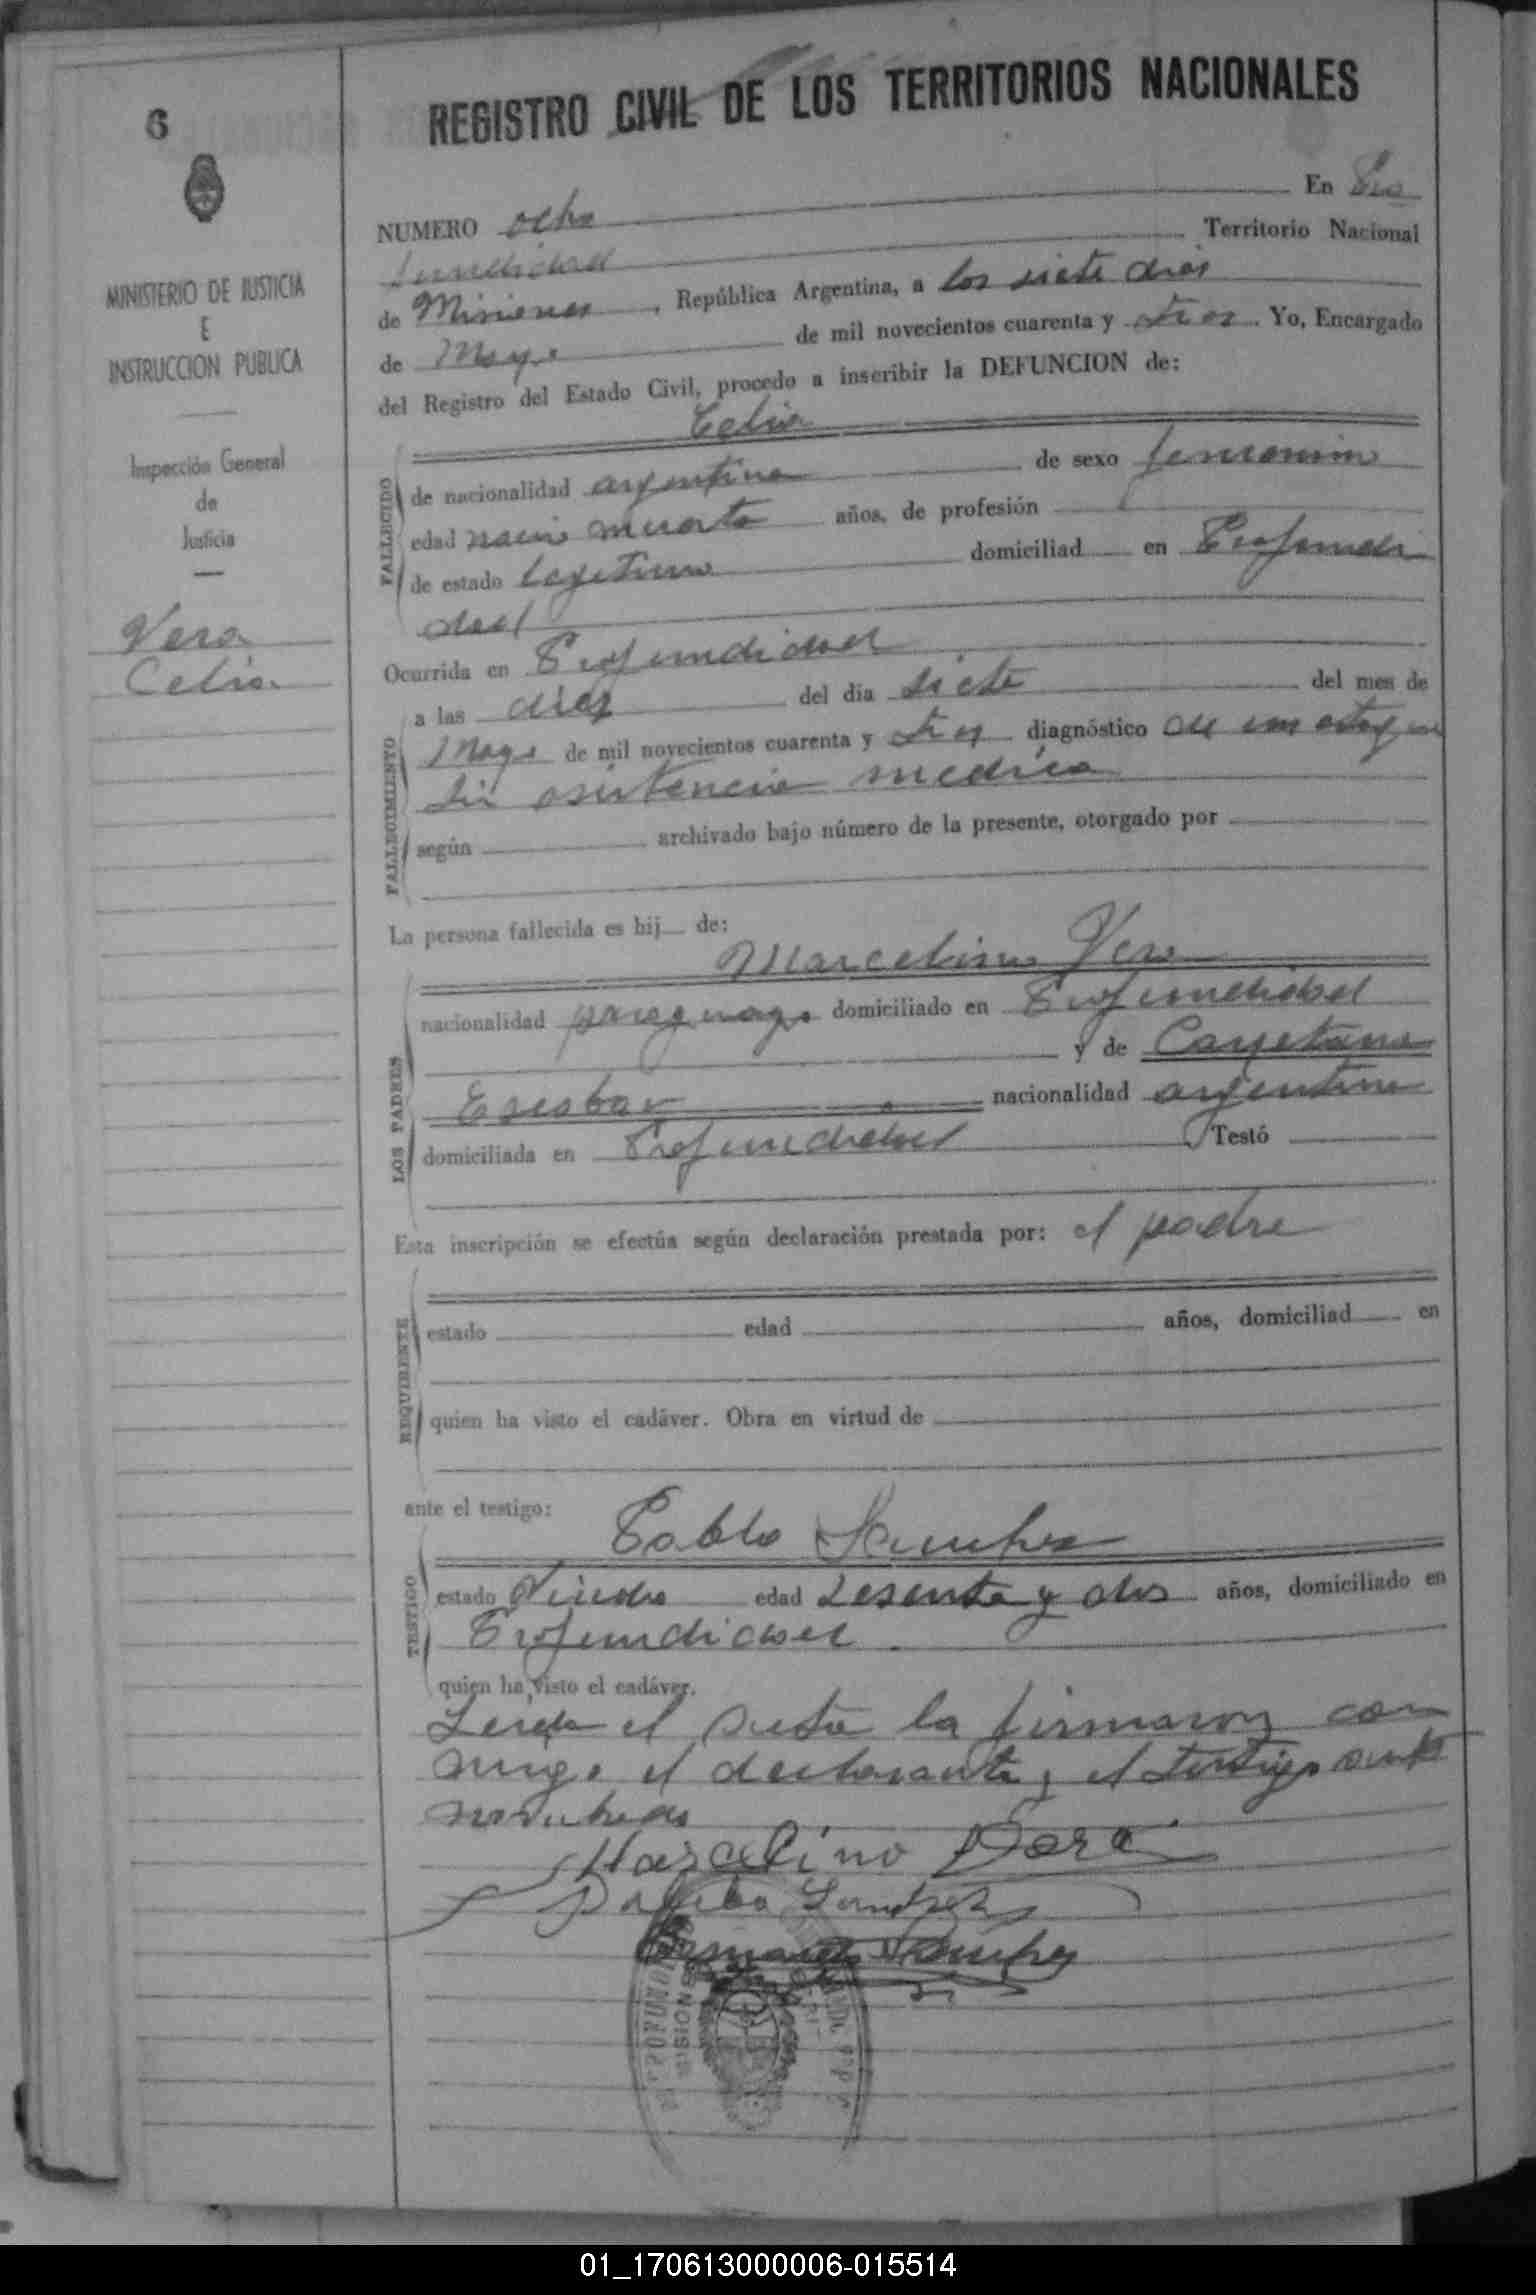 6
REGISTRO CIVIL DE LOS TERRITORIOS NACIONALES
MINISTERIO DE JUSTICIA
E
INSTRUCCION PUBLICA
Inspección General
de
Justicia
Vera
Celia
NUMERO ocho En Pro
fundidad Territorio Nacional
de Misiones, República Argentina, a los siete dias
de Mayo de mil novecientos cuarenta y tres. Yo, Encargado
del Registro del Estado Civil, procedo a inscribir la DEFUNCION de:
Celia
FALLECIDO
de nacionalidad argentina de sexo femenino
edad nacio muerta años, de profesión
de estado legitima domiciliad en Profundi
dad
Ocurrida en Profundidad
FALLECIMIENTO
a las diez del día siete del mes de
Mayo de mil novecientos cuarenta y tres diagnóstico
sin asistencia medica
según archivado bajo número de la presente, otorgado por
La persona fallecida es hij de:
Marcelino Vera
LOS PADRES
nacionalidad paraguayo domiciliado en Profundidad
y de Cayetana
Escobar nacionalidad argentina
domiciliada en Profundidad Testó
Esta inscripción se efectúa según declaración prestada por: el padre
REQUIRENTE
estado edad años, domiciliad en
quien ha visto el cadáver. Obra en virtud de
ante el testigo:
Pablo
TESTIGO
estado Viudo edad sesenta y dos años, domiciliado en
Profundidad.
quien ha visto el cadáver.
Leida el acta la firmaron con
migo el declarante y el testigo
Marcelino Vera
01_170613000006-015514